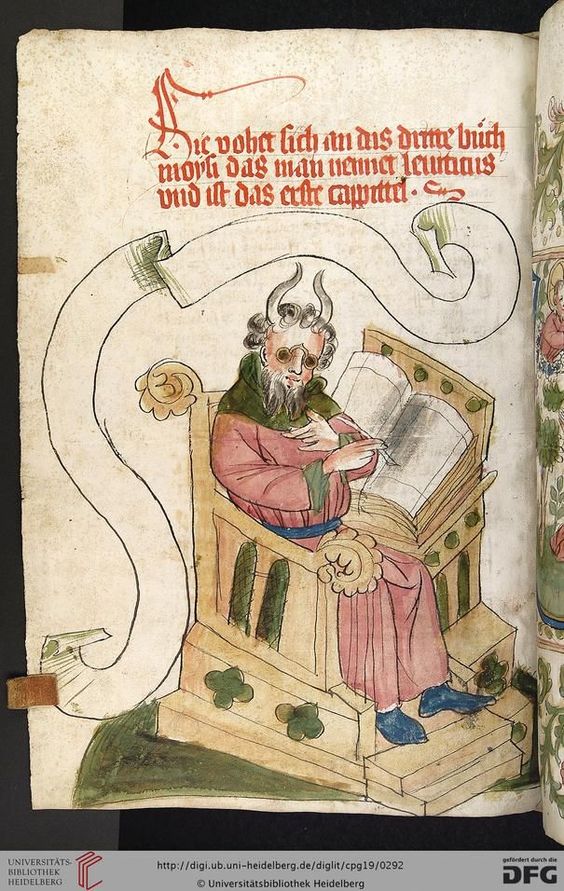 Hie vohet sich an das dritte bůch
moysi das man nennet leuiticus
vnd ist das erste cappittel ·
UNIVERSITÄTS-
BIBLIOTHEK
HEIDELBERG
http://digi.ub.uni-heidelberg.de/diglit/cpg19/0292
© Universitätsbibliothek Heidelberg
gefördert durch die
DFG